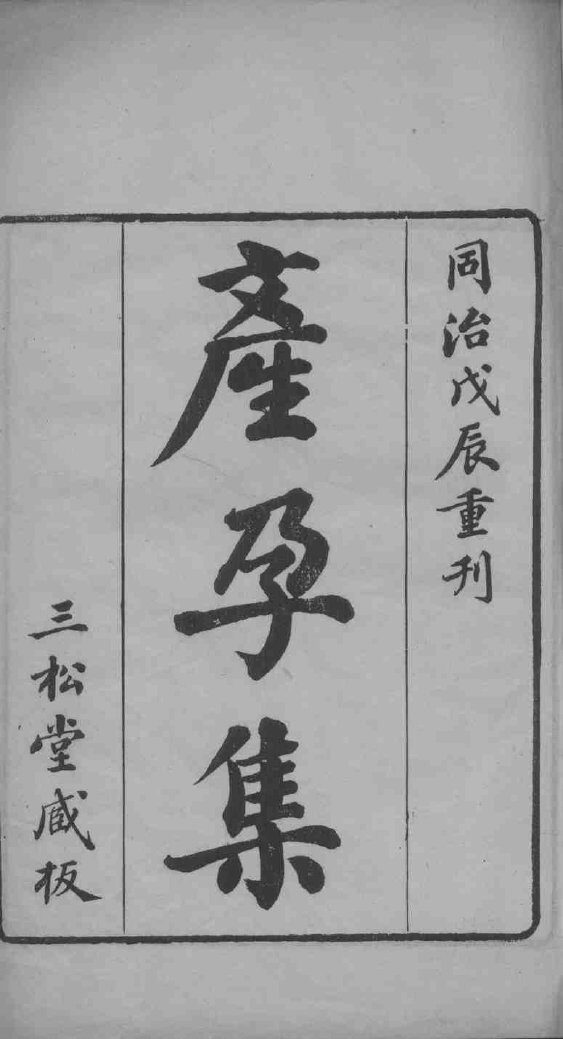 同治戊辰重刊
產孕集
三松堂蔵板